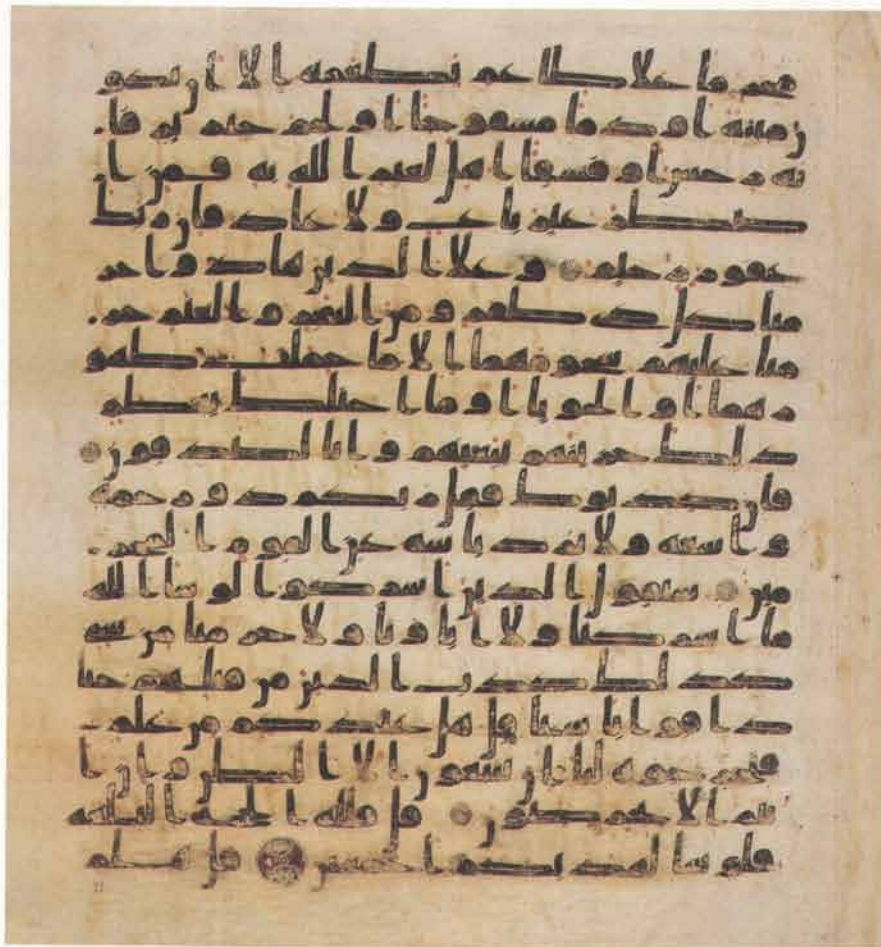 محرما علا طاعم يطعمه الا ان يكو
ن ميته او دما مسفوحا او لحم خنزير فا
نه رجس او فسقا اهل لغير الله به فمن ا
ضطر غير باغ ولا عاد فان ربك
غفور رحيم وعلا الذين هادوا حر
منا كل ذي ظفر ومن البقر والغنم حر
منا عليهم شحومهما الا ما حملت ظهو
رهما او الحوايا او ما اختلط بعظم
ذلك جزينهم ببغيهم وانا لصدقون
فان كذبوك فقل ربكم ذو رحمه
واسعه ولا يرد باسه عن القوم المجر
مين سيقول الذين اشركوا لو شا الله
ما اشركنا ولا اباونا ولا حرمنا من شي
كذلك كذب الذين من قبلهم حتا
ذاقوا باسنا قل هل عندكم من علم
فتخرجوه لنا ان تتبعون الا الظن وان ا
نتم الا تخرصون قل فلله الحجه البلغه
فلو شا لهديكم اجمعين قل هلم